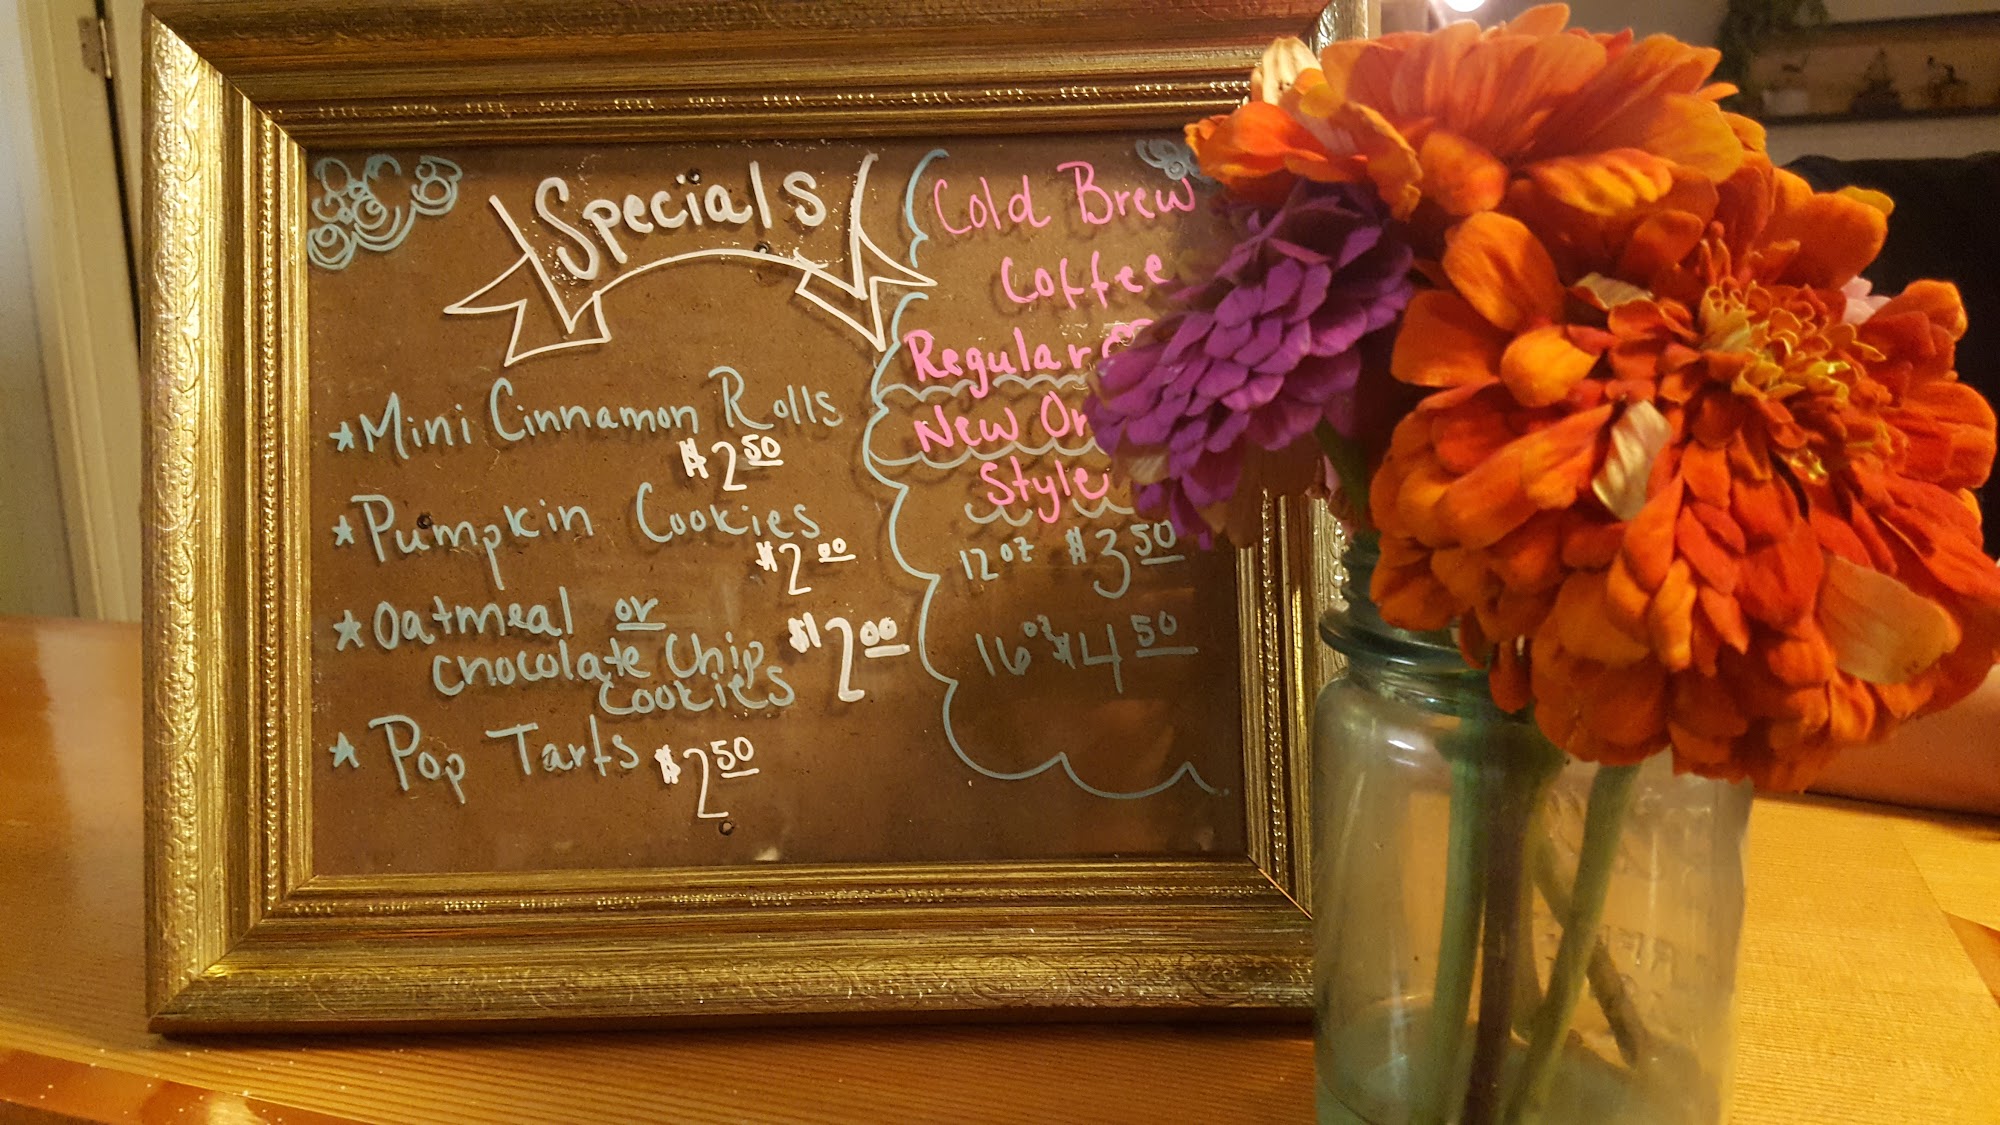 Specials
★ Mini Cinnamon Rolls
$2.50
★ Pumpkin Cookies
$2.00
★ Oatmeal or
chocolate Chip
cookies $2.00
★ Pop Tarts $2.50
Cold Brew
Coffee
Regular
New
Style
12 oz $3.50
16 oz $4.50